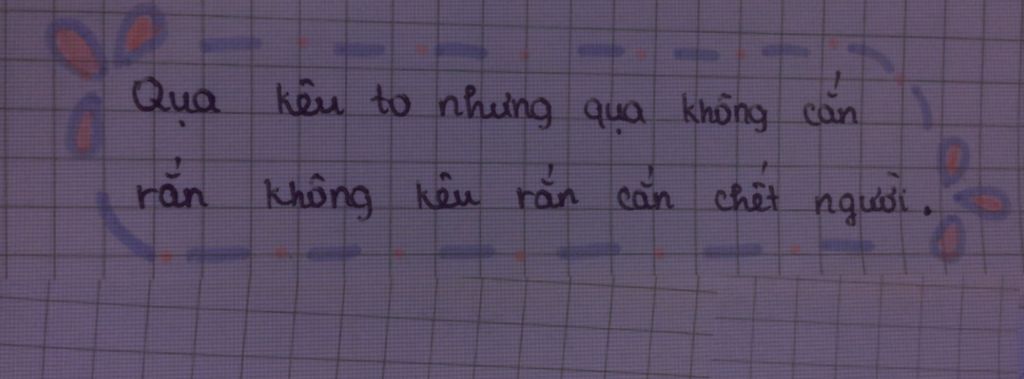 Quạ kêu to nhưng quạ không cắn
rắn không kêu rắn cắn chết người.